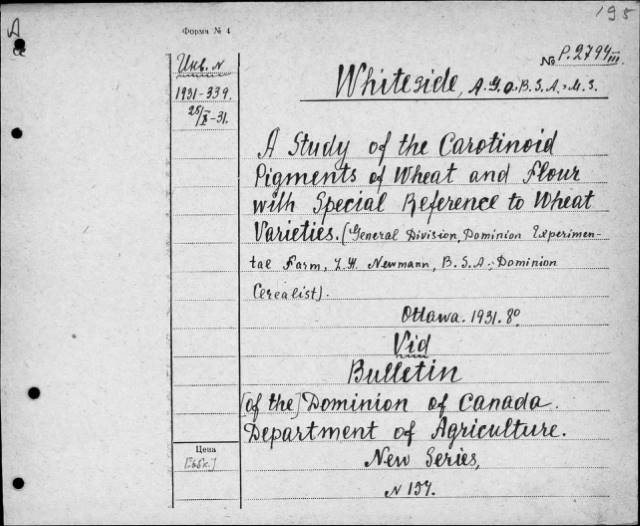 195
Форма № 4
№ P.2794 III.
Инв. N
1931-339.
28/X-31.
Whiteside, A.G.O. B.S.A., M.S.
A Study of the Carotinoid
Pigments of Wheat and Flour
with Special Reference to Wheat
Varieties. (General Division, Dominion Experimen-
tae Farm, L.H. Newmann, B.S.A., Dominion
Cerealist).
Ottawa. 1931. 8°.
Vid
Bulletin
[of the] Dominion of Canada.
Department of Agriculture.
New Series,
N 157.
Цена